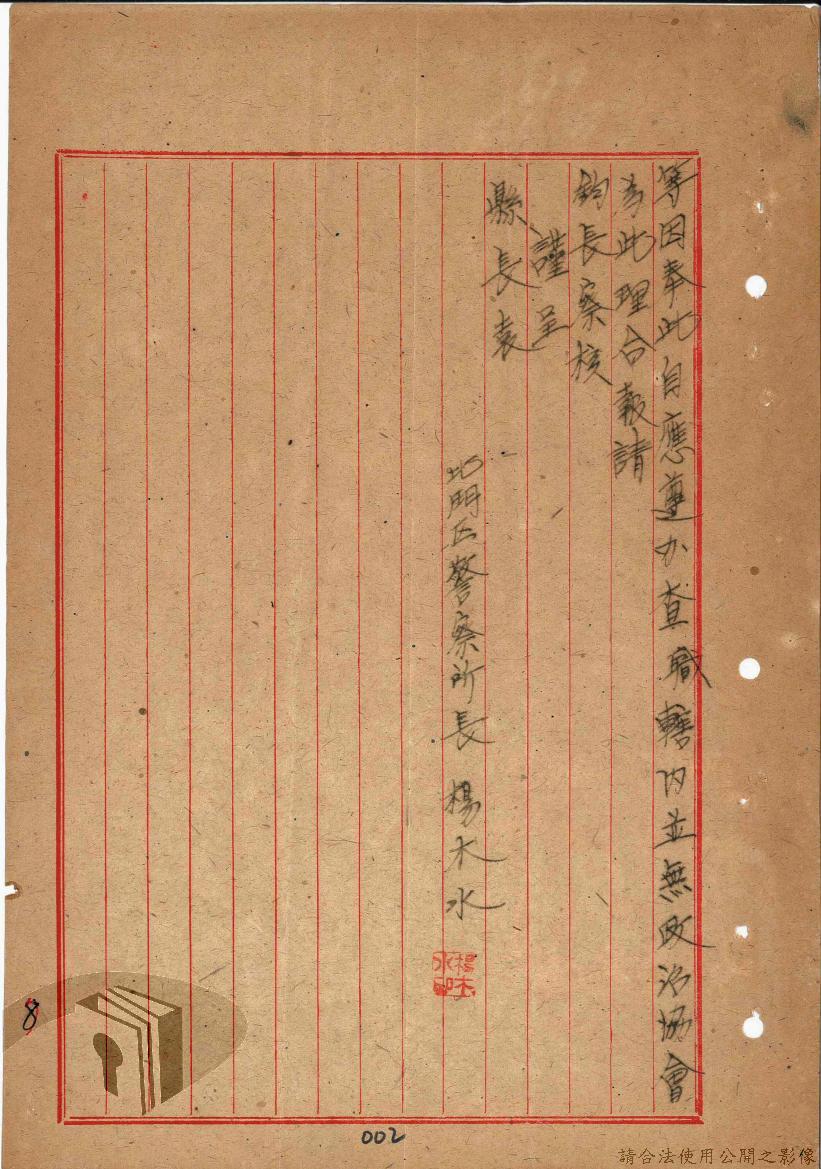 等因奉此自應遵办查職轄内並無政治協會
為此理合報請
鈞長察核
謹呈
縣長袁
北門区警察所長 楊木水
楊木水印
8
002
請合法使用公開之影像